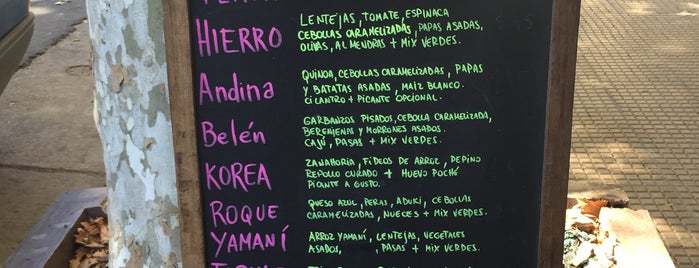 HIERRO
LENTEJAS, TOMATE, ESPINACA
CEBOLLAS CARAMELIZADAS, PAPAS ASADAS,
OLIVAS, ALMENDRAS + MIX VERDES.
Andina
QUINOA, CEBOLLAS CARAMELIZADAS, PAPAS
Y BATATAS ASADAS, MAIZ BLANCO.
CILANTRO + PICANTE OPCIONAL.
Belén
GARBANZOS PISADOS, CEBOLLA CARAMELIZADA,
BERENJENAS Y MORRONES ASADOS.
CAJÚ, PASAS + MIX VERDES.
KOREA
ZANAHORIA, FIDEOS DE ARROZ, PEPINO
REPOLLO CURADO + HUEVO POCHÉ
PICANTE A GUSTO.
ROQUE
QUESO AZUL, PERAS, ADUKI, CEBOLLAS
CARAMELIZADAS, NUECES + MIX VERDES.
YAMANÍ
ARROZ YAMANÍ, LENTEJAS, VEGETALES
ASADOS, , PASAS + MIX VERDES.